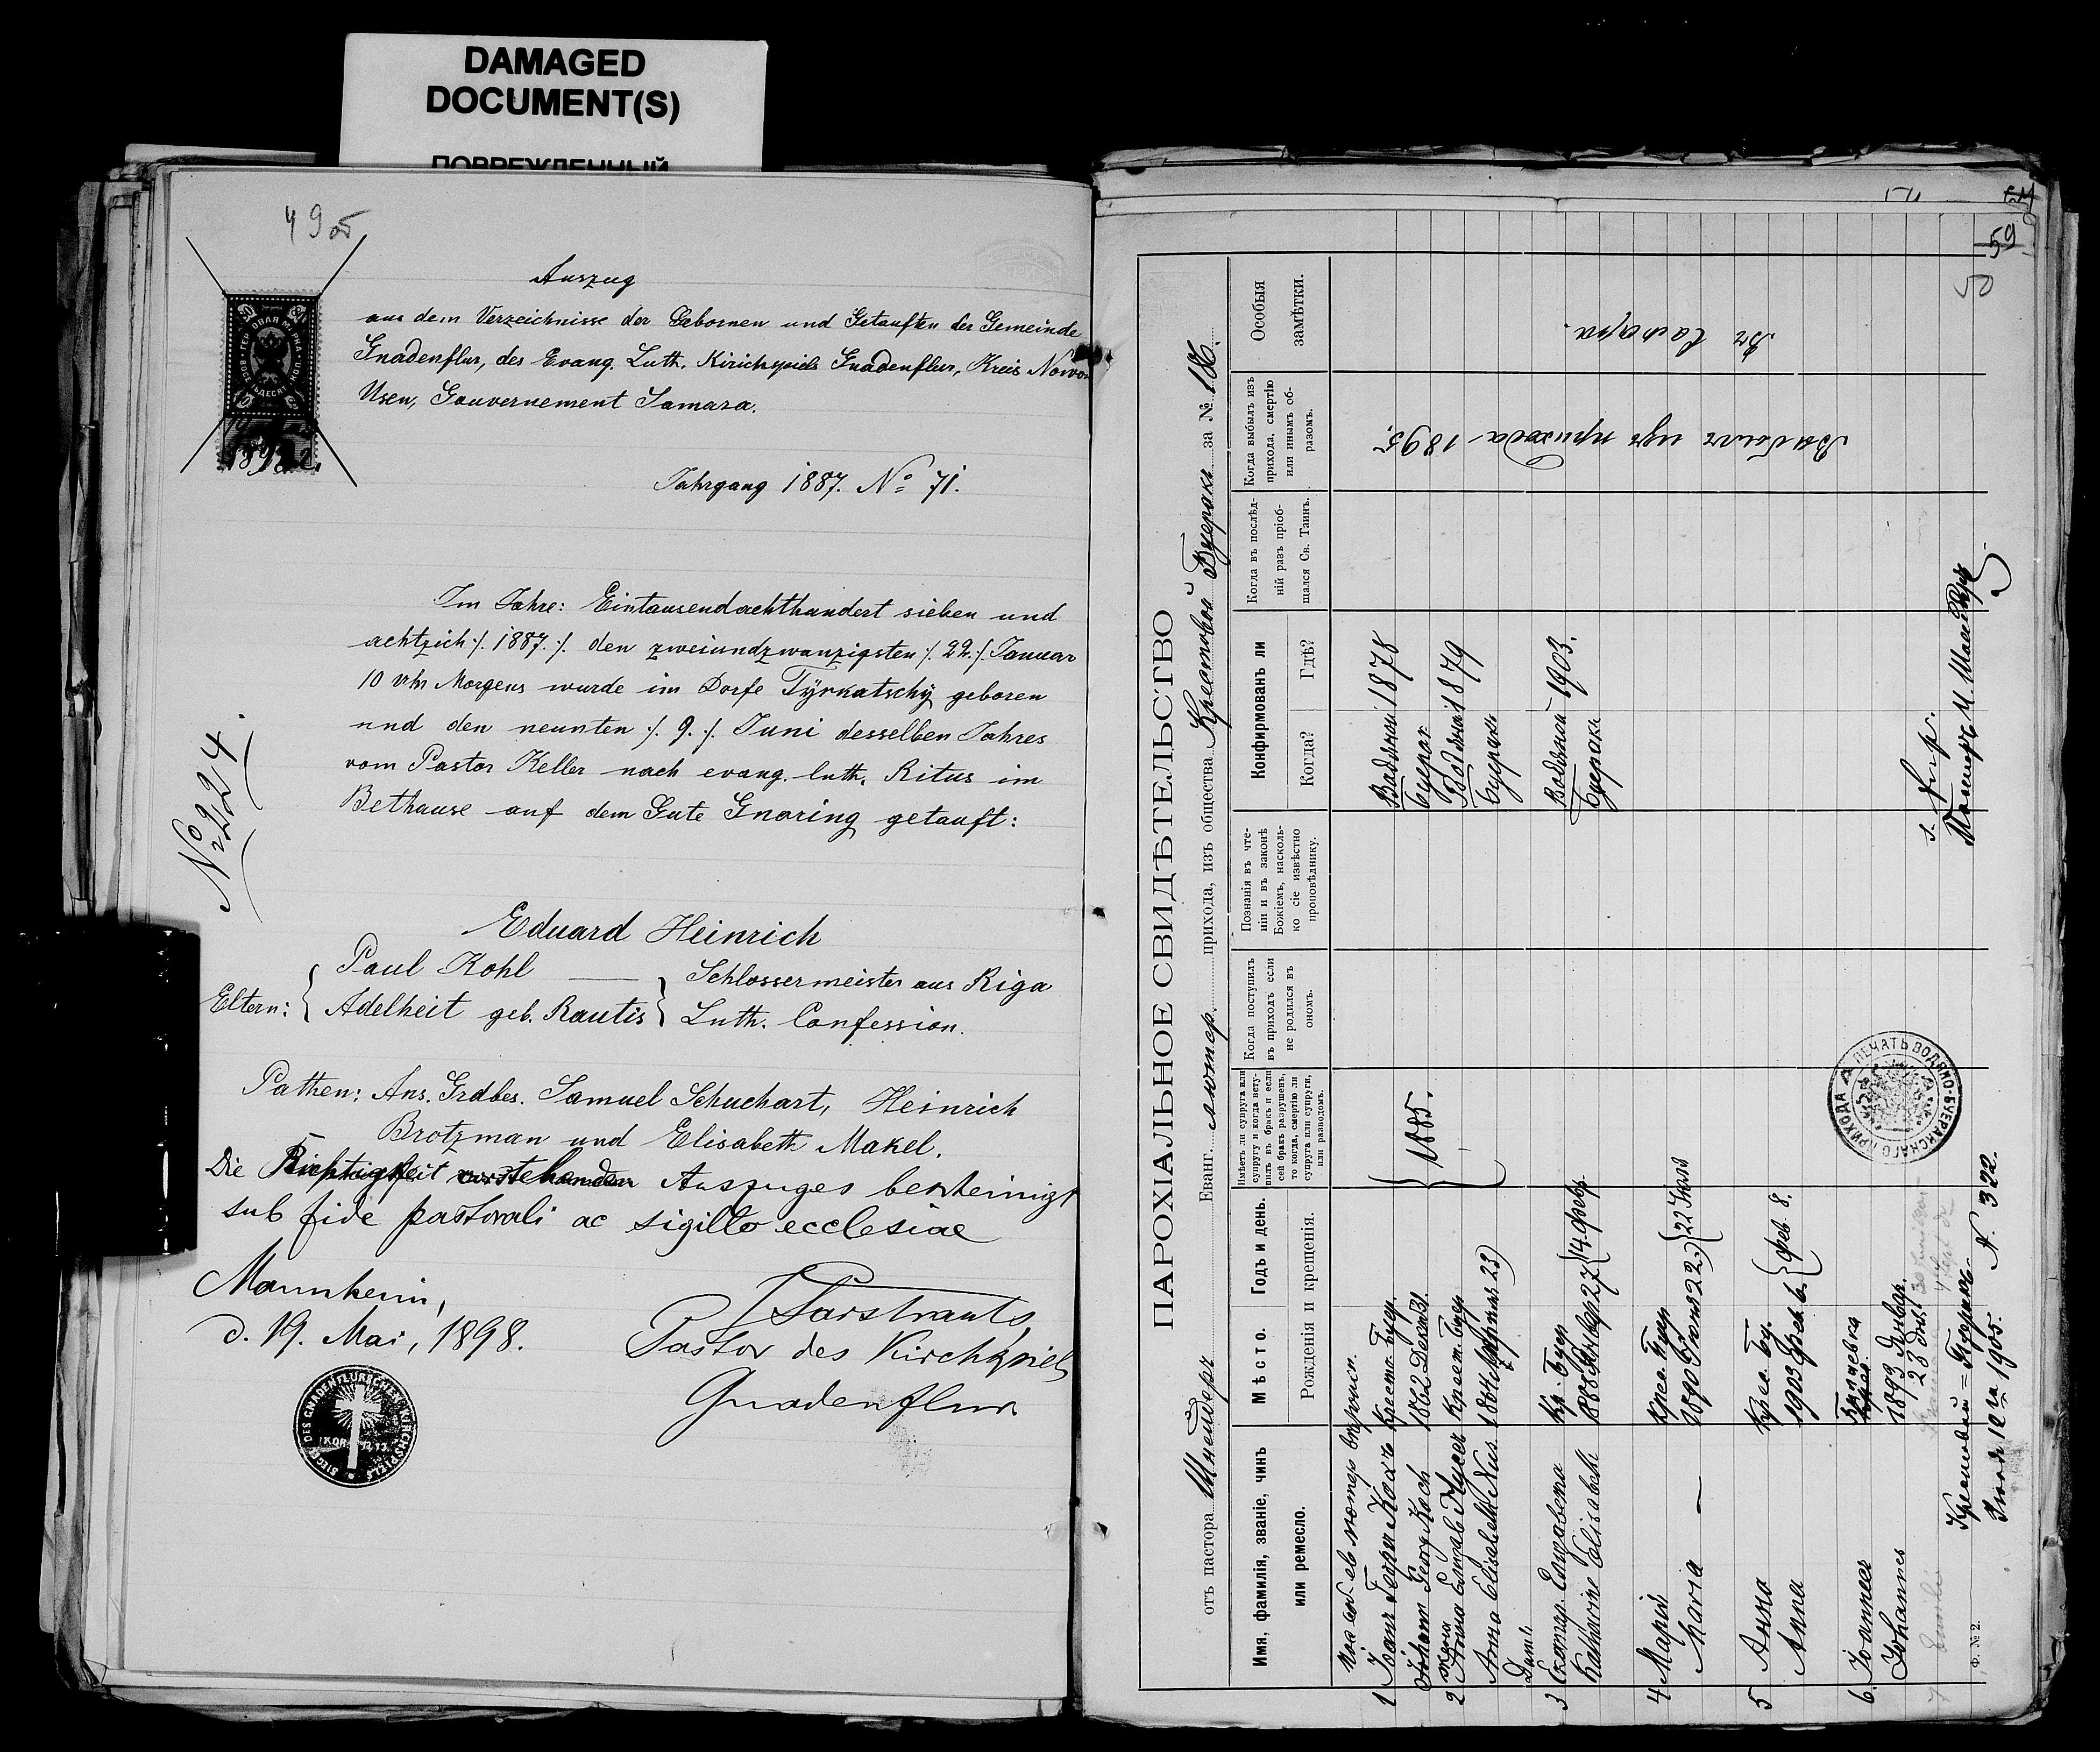 DAMAGED
DOCUMENT(S)
ПОВРЕЖДЕННЫЙ
49об
Auszug
aus dem Verzeichnisse der Gebornen und Getauften der Gemeinde
Gnadenflur, des Evang. Luth. Kirichspiels Gnadenflur, Kreis Nowo
Usen, Gouvernement Samara.
Jahrgang 1887. No 71.
Im Jahre: Eintausendachthundert sieben und
achtzich /. 1887. /. den zweiundzwanzigsten /. 22. /. Januar
10 Uhr Morgens wurde im Dorfe Tyrkatschÿ geboren
und den neunten /. 9. /. Juni desselben Jahres
vom Pastor Keller nach evang. luth. Ritus im
Bethause auf dem Gute Gnoring getauft:
No 224.
Eduard Heinrich
Eltern: Paul Kohl — Schlossermeister aus Riga
Adelheit geb. Rautis Luth. Confession.
Pathen: Ans. Grdbes. Samuel Schuchart, Heinrich
Brotzman und Elisabeth Makel.
Die Richtigkeit vorstehenden Auszuges bescheinigt
sub fide pastorali ac sigillo ecclesiae
Mannheim,
d. 19. Mai, 1898.
Pastor des Kirchspiels
Gnadenflur
SIEGEL DES GNADENFLURSCHEN KIRCHSPIELS
59
50
ПАРОХІАЛЬНОЕ СВИДѢТЕЛЬСТВО
отъ пастора Шнейдеръ Еванг. лютер. прихода, изъ общества Крестовой Буеракъ за № 186.
Имя, фамилія, званіе, чинъ или ремесло.
Мѣсто. Годъ и день.
Рожденія и крещенія.
Имѣетъ ли супруга или супругу и когда вступилъ въ бракъ и если сей бракъ разрушенъ, то когда, смертію ли супруга или супруги, или разводомъ.
Когда поступилъ въ приходъ если не родился въ ономъ.
Познанія въ чтеніи и въ законѣ Божіемъ, насколько сіе извѣстно проповѣднику.
Конфирмованъ ли
Когда? Гдѣ?
Когда въ послѣдній разъ пріобщался Св. Таинъ.
Когда выбылъ изъ прихода, смертію или инымъ образомъ.
Особыя замѣтки.
1 Іоаннъ Георгъ Кохъ Кресто. Буер.
Johann Georg Koch 1862 Декаб 31. 1885. Водяной Буерак 1878
2 жена Анна Елизав Нусс Крест. Буер
Anna Elisabeth Nus 1864 23 Водяной Буерак 1879
Дѣти:
3 Екатер. Елизавета Кр. Буер
Katharine Elisabeth 27 14 февр. Водяной Буерак 1903.
4 Марія Крес. Буер
Maria — 1890 22 22
5 Анна Крес. Бу.
Anna 1903 Фев. 6 Фев. 8.
6. Іоаннес
Johannes 1893 Январ. 23
Выбылъ изъ прихода 1895.
Въ Самара.
Крестовый = Буеракъ.
10го 1905. N. 322.
Пасторъ
ПЕЧАТЬ ВОДЯНО-БУЕРАКСКАГО ПРИХОДА
Ф. № 2.